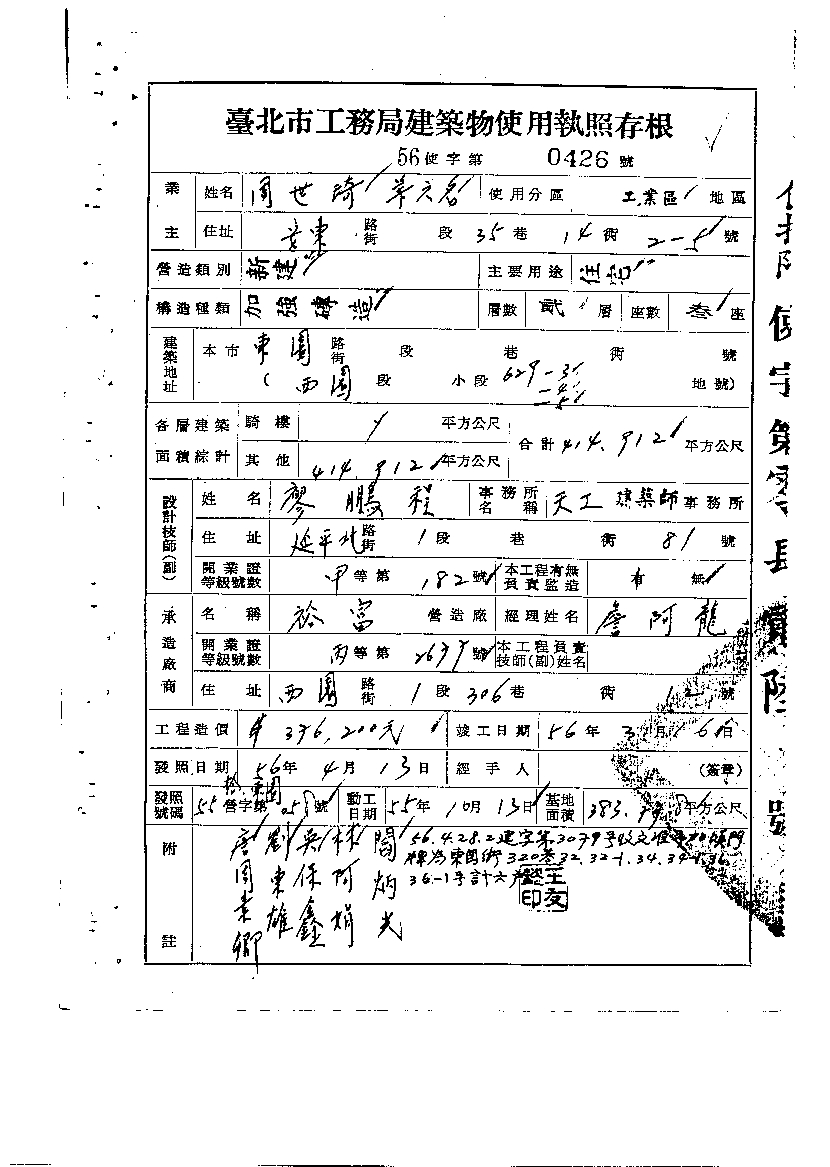 臺北市工務局建築物使用執照存根
56使字第 0426 號
業主 姓名 周世琦 等六名 使用分區 工業區 地區
住址 東 路街 段 35 巷 14 街 2-5 號
營造類別 新建 主要用途 住宅
構造種類 加強磚造 層數 貳 層 座數 叁 座
建築地址 本市 東園 路街 段 巷 街 號
(西園 段 小段 629-3 -4 -5 地號)
各層建築面積綜計 騎樓 平方公尺 合計 414.912 平方公尺
其他 414.912 平方公尺
設計技師(副) 姓名 廖鵬程 事務所名稱 天工建築師事務所
住址 延平北 路街 1 段 巷 街 81 號
開業證等級號數 甲 等第 182 號 本工程有無負責監造 有 無
承造廠商 名稱 裕富 營造廠 經理姓名 詹阿龍
開業證等級號數 丙 等第 號 本工程負責技師(副)姓名
住址 西園 路街 1 段 306 巷 街 號
工程造價 376,200元 竣工日期 56 年 3 月 16 日
發照日期 56 年 4 月 13 日 經手人 (簽章)
發照號碼 55 營字第 號 動工日期 55 年 10 月 13 日 基地面積 383. 平方公尺
附註
56.4.28.2建字第3079號收文准
牌為東園街320巷32.32-1.34.34-1.36
36-1号計六戶
閻炳光
林阿娟
吳保鑫
劉東雄
唐周素卿
使字第零